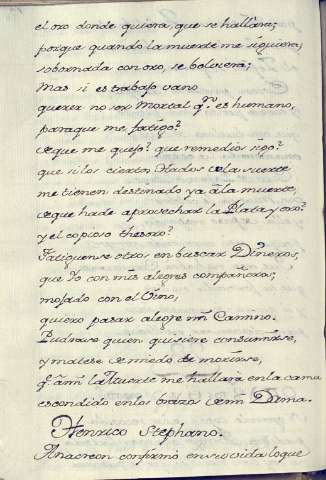 el oro donde quiera que se hallara;
porque quando la muerte me siguiera,
sobornada con oro, se bolviera;
Mas si es trabajo vano
querer no ser Mortal q.n es humano,
paraque me fatigo?
de que me quejo? que remedios sigo?
que si los ciertos Hados de la suerte
me tienen destinado ya à la muerte,
de que hade aprovechar la Plata y oro?
y el copioso thesoro?
Fatiguense otros en buscar Dineros,
que Yo con mis alegres compañeros,
mojado con el Vino,
quiero pasar alegre mi Camino.
Pudrase quien quisiere consumirse,
y matese de miedo de morirse,
q.e à mi la Muerte me hallara en la cama
escondido en los brazos de mi Dama.
Henrico Stephano.
Anacreon confirmò en su vida lo que